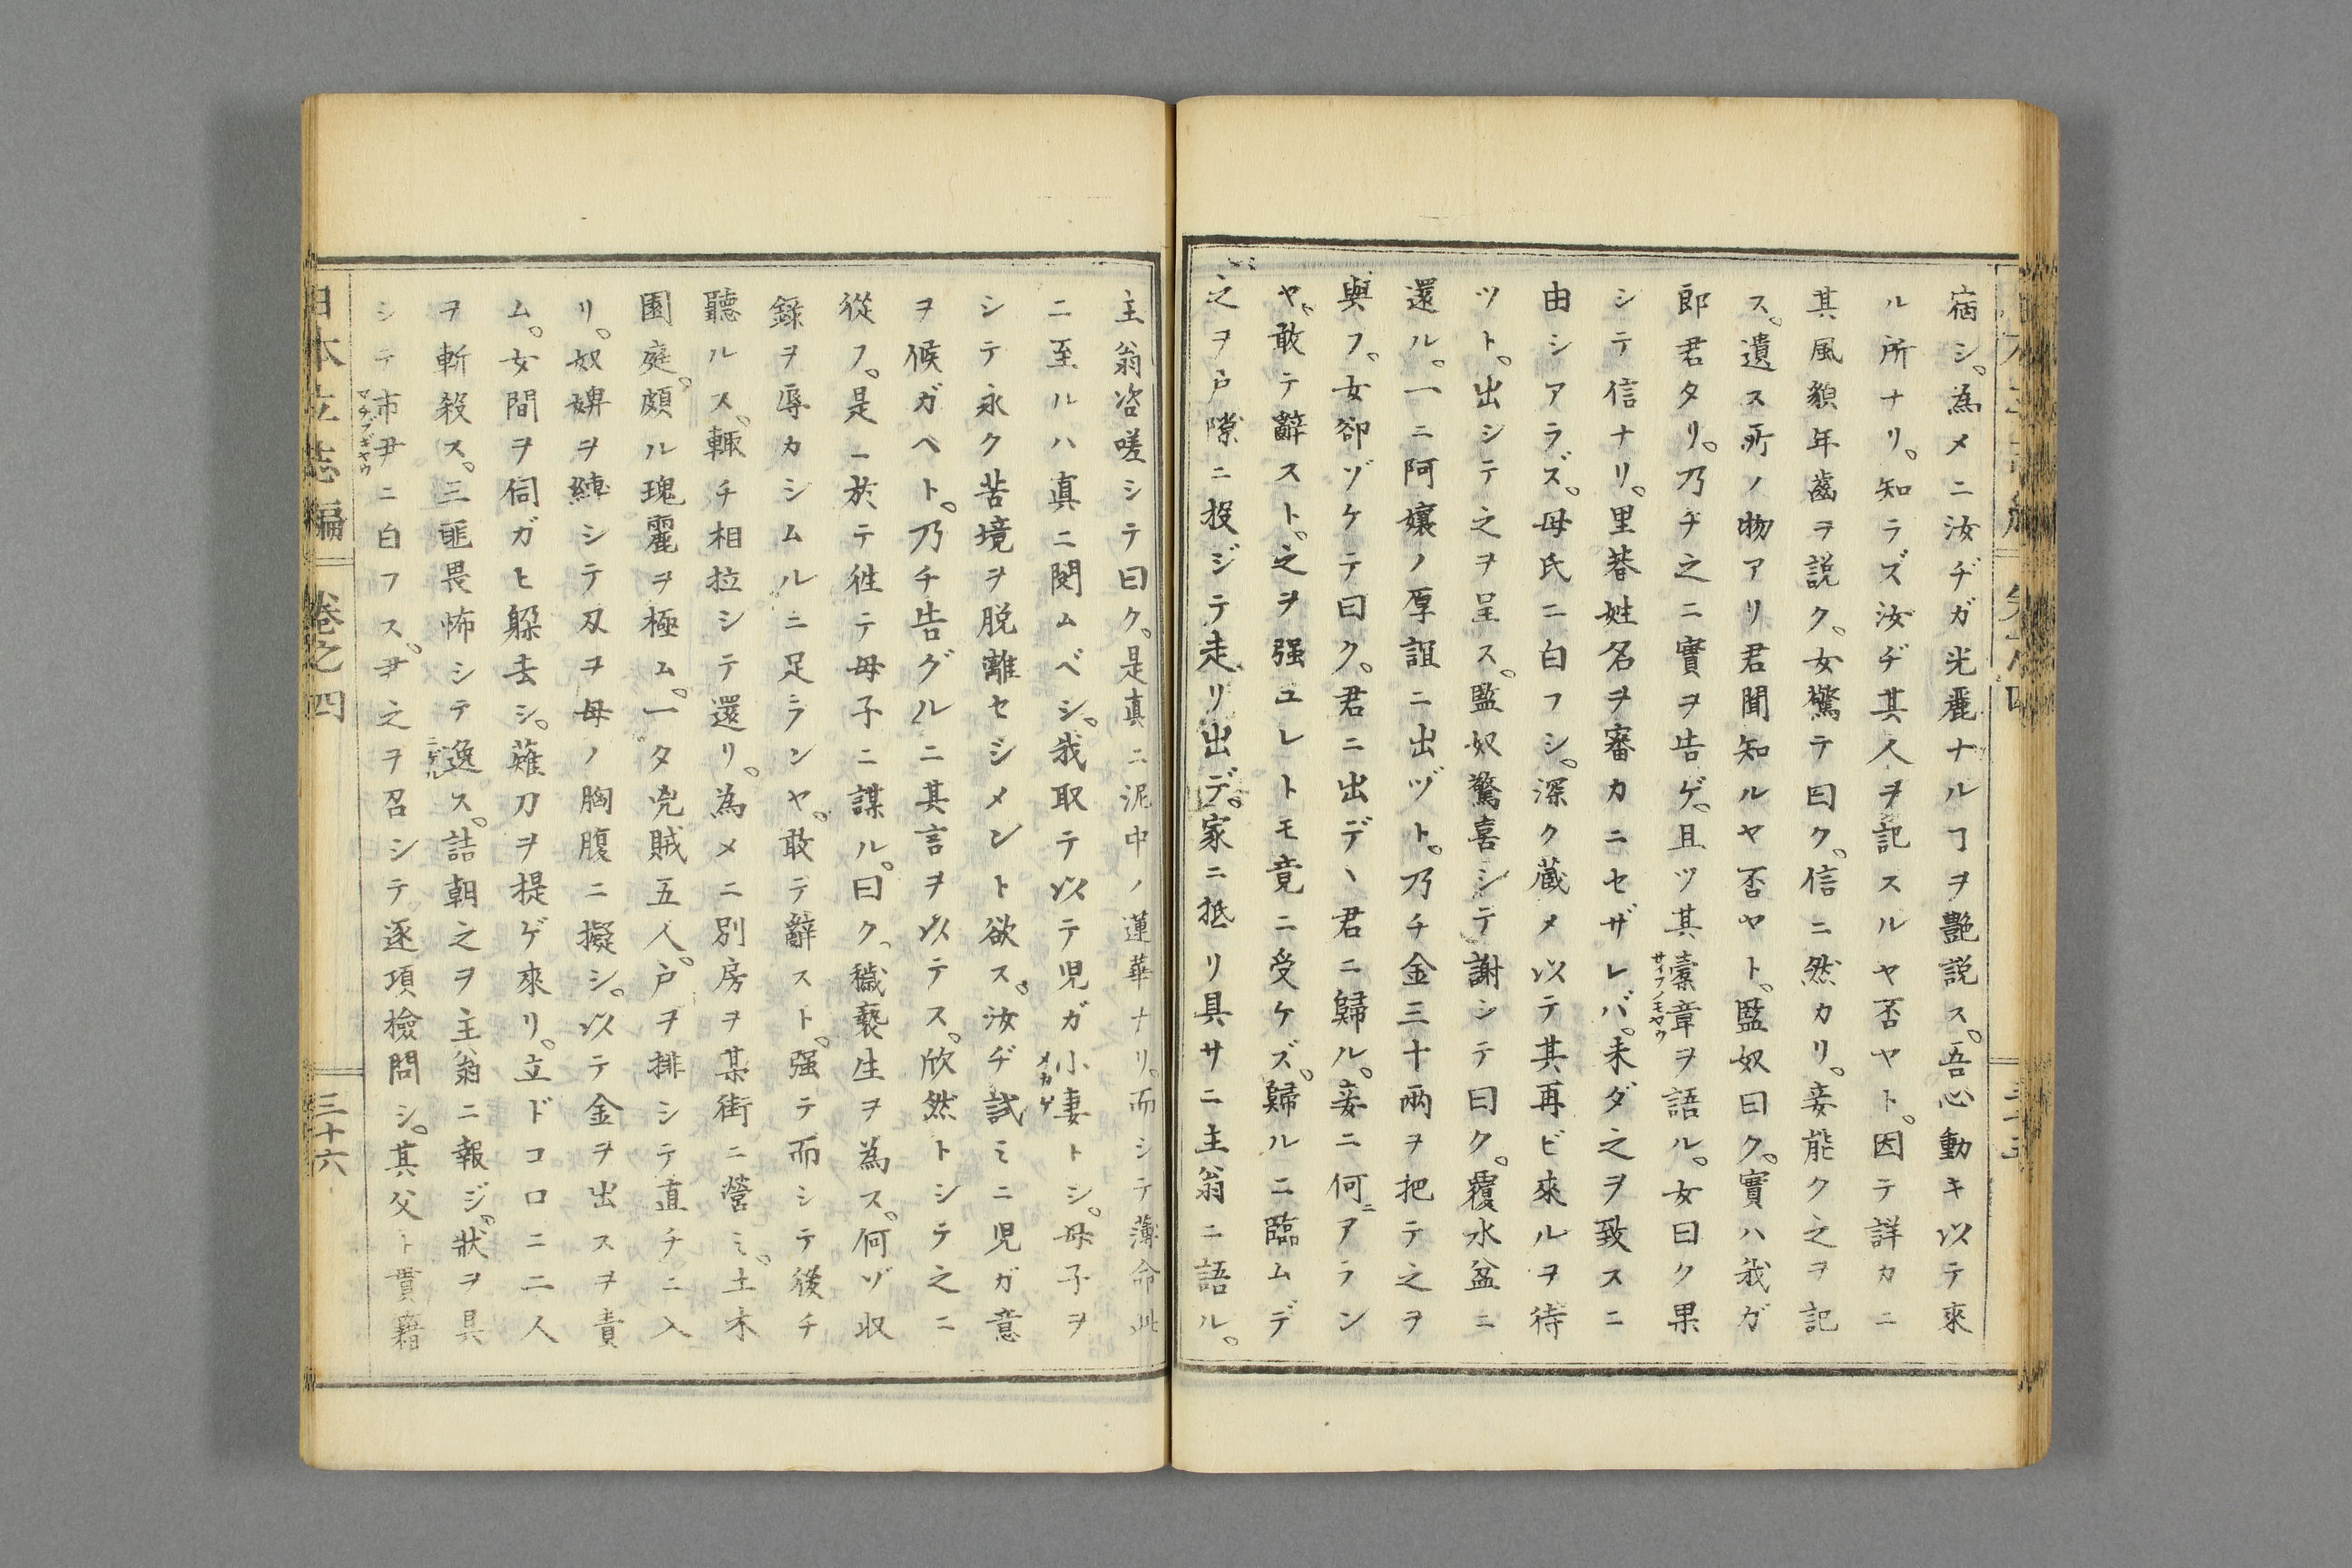 宿シ。為メニ汝ヂガ光麗ナルヿヲ艶説ス。吾心動キ以テ來
ル所ナリ。知ラズ汝ヂ其人ヲ記スルヤ否ヤト。因テ詳カニ
其風貌年齒ヲ説ク。女驚テ曰ク。信ニ然カリ。妾能ク之ヲ記
ス。遺ス所ノ物アリ君聞知ルヤ否ヤト。監奴曰ク。實ハ我ガ
郎君タリ。乃チ之ニ實ヲ告ゲ。且ツ其槖章ヲ語ル。女曰ク果
サイフノモヤウ
シテ信ナリ。里巷姓名ヲ審カニセザレバ。未ダ之ヲ致スニ
由シアラズ。母氏ニ白フシ。深ク藏メ以テ其再ビ來ルヲ待
ツト。出シテ之ヲ呈ス。監奴驚喜シテ謝シテ曰ク。覆水盆ニ
還ル。一ニ阿孃ノ厚誼ニ出ヅト。乃チ金三十兩ヲ把テ之ヲ
與フ。女卻ゾケテ曰ク。君ニ出デヽ君ニ歸ル。妾ニ何ニアラン
ヤ。敢テ辭スト。之ヲ强ユレトモ竟ニ受ケズ。歸ルニ臨ムデ
之ヲ戸隙ニ投ジテ走リ出デ。家ニ抵リ具サニ主翁ニ語ル。
主翁咨嗟シテ曰ク。是真ニ泥中ノ蓮華ナリ。而シテ薄命此
ニ至ルハ真ニ閔ムベシ。我取テ以テ児ガ小妻トシ。母子ヲ
メカケ
シテ永ク苦境ヲ脱離セシメント欲ス。汝ヂ試ミニ児ガ意
ヲ候ガベト。乃チ告グルニ其言ヲ以テス。欣然トシテ之ニ
從フ。是ニ於テ徃テ母子ニ謀ル。曰ク。穢褻生ヲ為ス。何ゾ収
錄ヲ辱カシムルニ足ランヤ。敢デ辭スト。强テ而シテ後チ
聽ルス。輒チ相拉シテ還リ。為メニ別房ヲ某街ニ營ミ。土木
園庭。頗ル瑰麗ヲ極ム。一夕兇賊五人。戸ヲ排シテ直チニ入
リ。奴婢ヲ縛シテ刄ヲ母ノ胸腹ニ擬シ。以テ金ヲ出スヲ責
ム。女間ヲ伺ガヒ躱去シ。薙刀ヲ提ゲ來リ。立ドコロニ二人
ヲ斬殺ス。三匪畏怖シテ逸ス。詰朝之ヲ主翁ニ報ジ。狀ヲ具
ニゲル
シテ市尹ニ白フス。尹之ヲ召シテ逐項檢問シ。其父ト貫籍
マチブギヤウ
日本立志編 卷之四 三十六